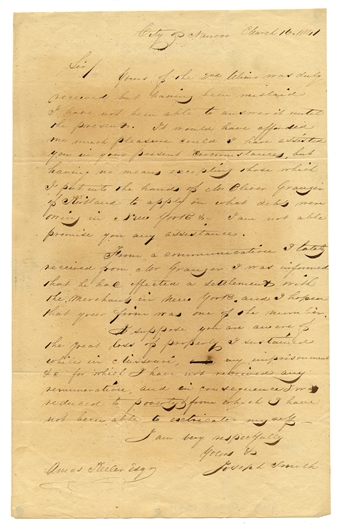 City of Nauvoo March 16 1841
Sir/
Yours of the 2nd Ultimo was duly
received but having been mislaid
I have not been able to answer it until
the present. It would have afforded
me much pleasure could I have assisted
you in your present circumstances, but
having no means excepting those which
I put into the hands of Mr Oliver Granger
of Kirtland to apply on what debts were
owing in New York &c I am not able
promise you any assistance.
From a communication I lately
received from Mr Granger I was informed
that he had effected a settlement with
the Merchants in New York, and I hoped
that your firm was one of the number.
I suppose you are aware of
the great loss of property I sustained
while in Missouri, my imprisonment
&c for which I have not received any
remuneration, and in consequence I was
reduced to poverty from which I have
not been able to extricate myself—
I am very respectfully
Yours &c
Amos Keeler Esqr Joseph Smith